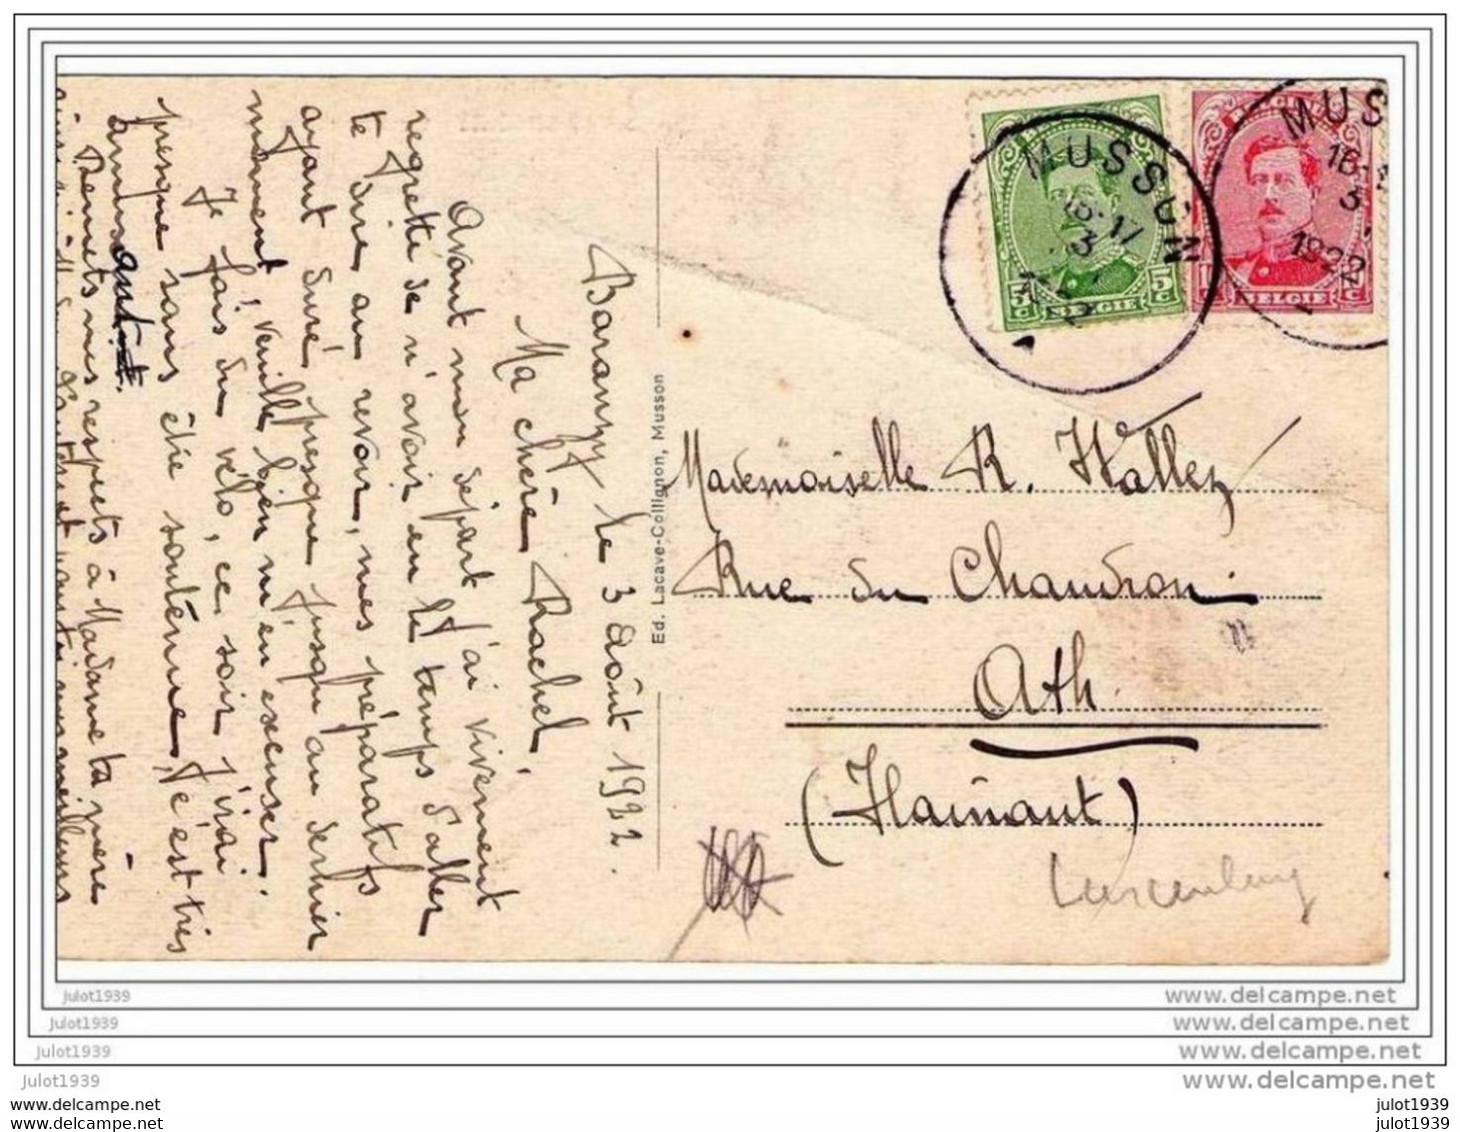 Baranzy le 3 août 1922.
Ma chère Rachel,
Avant mon départ j'ai vivement
regretté de n'avoir eu le temps d'aller
te dire au revoir, mes préparatifs
ayant duré presque jusqu'au dernier
moment, veuille bien m'en excuser.
Je fais du vélo, ce soir j'irai
presque sans être soutenue, c'est très
amusant.
Remets mes respects à Madame ta mère
mes meilleurs
Ed. Lacave-Collignon, Musson
MUSSON
3
5c
BELGIE
5c
MUS
16
3
1922
BELGIE
Mademoiselle R. Wallez
Rue du Chaudron
Ath
(Hainaut)
Luxembourg
julot1939
julot1939
julot1939
julot1939
julot1939
julot1939
www.delcampe.net
www.delcampe.net
www.delcampe.net
www.delcampe.net
www.delcampe.net
www.delcampe.net
julot1939
julot1939